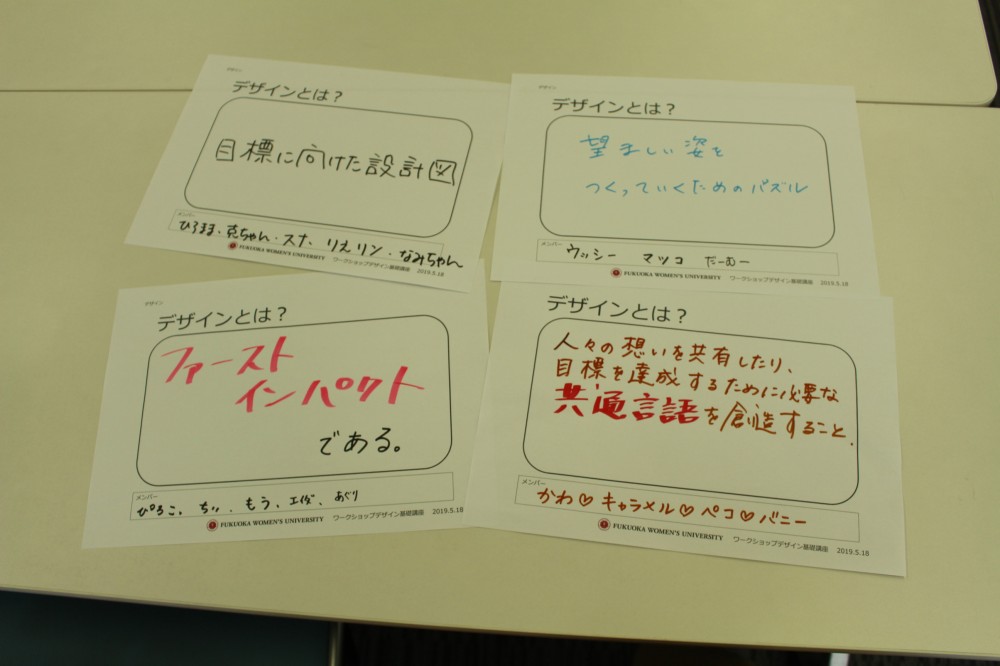 デザイン
デザインとは?
目標に向けた設計図
メンバー
ひろまま、克ちゃん・スナ、りえリン・なみちゃん
FUKUOKA WOMEN'S UNIVERSITY ワークショップデザイン基礎講座 2019.5.18
デザイン
デザインとは?
望ましい姿を
つくっていくためのパズル
メンバー
ウッシー マツコ だーむー
FUKUOKA WOMEN'S UNIVERSITY ワークショップデザイン基礎講座 2019.5.18
デザイン
デザインとは?
ファースト
インパクト
である。
メンバー
ぴろこ、ちぃ、もう、エイダ、あぐり
FUKUOKA WOMEN'S UNIVERSITY ワークショップデザイン基礎講座 2019.5.18
デザインとは?
人々の想いを共有したり、
目標を達成するために必要な
共通言語を創造すること.
メンバー
かわ♡キャラメル♡ペコ♡バニー
FUKUOKA WOMEN'S UNIVERSITY ワークショップデザイン基礎講座 2019.5.18